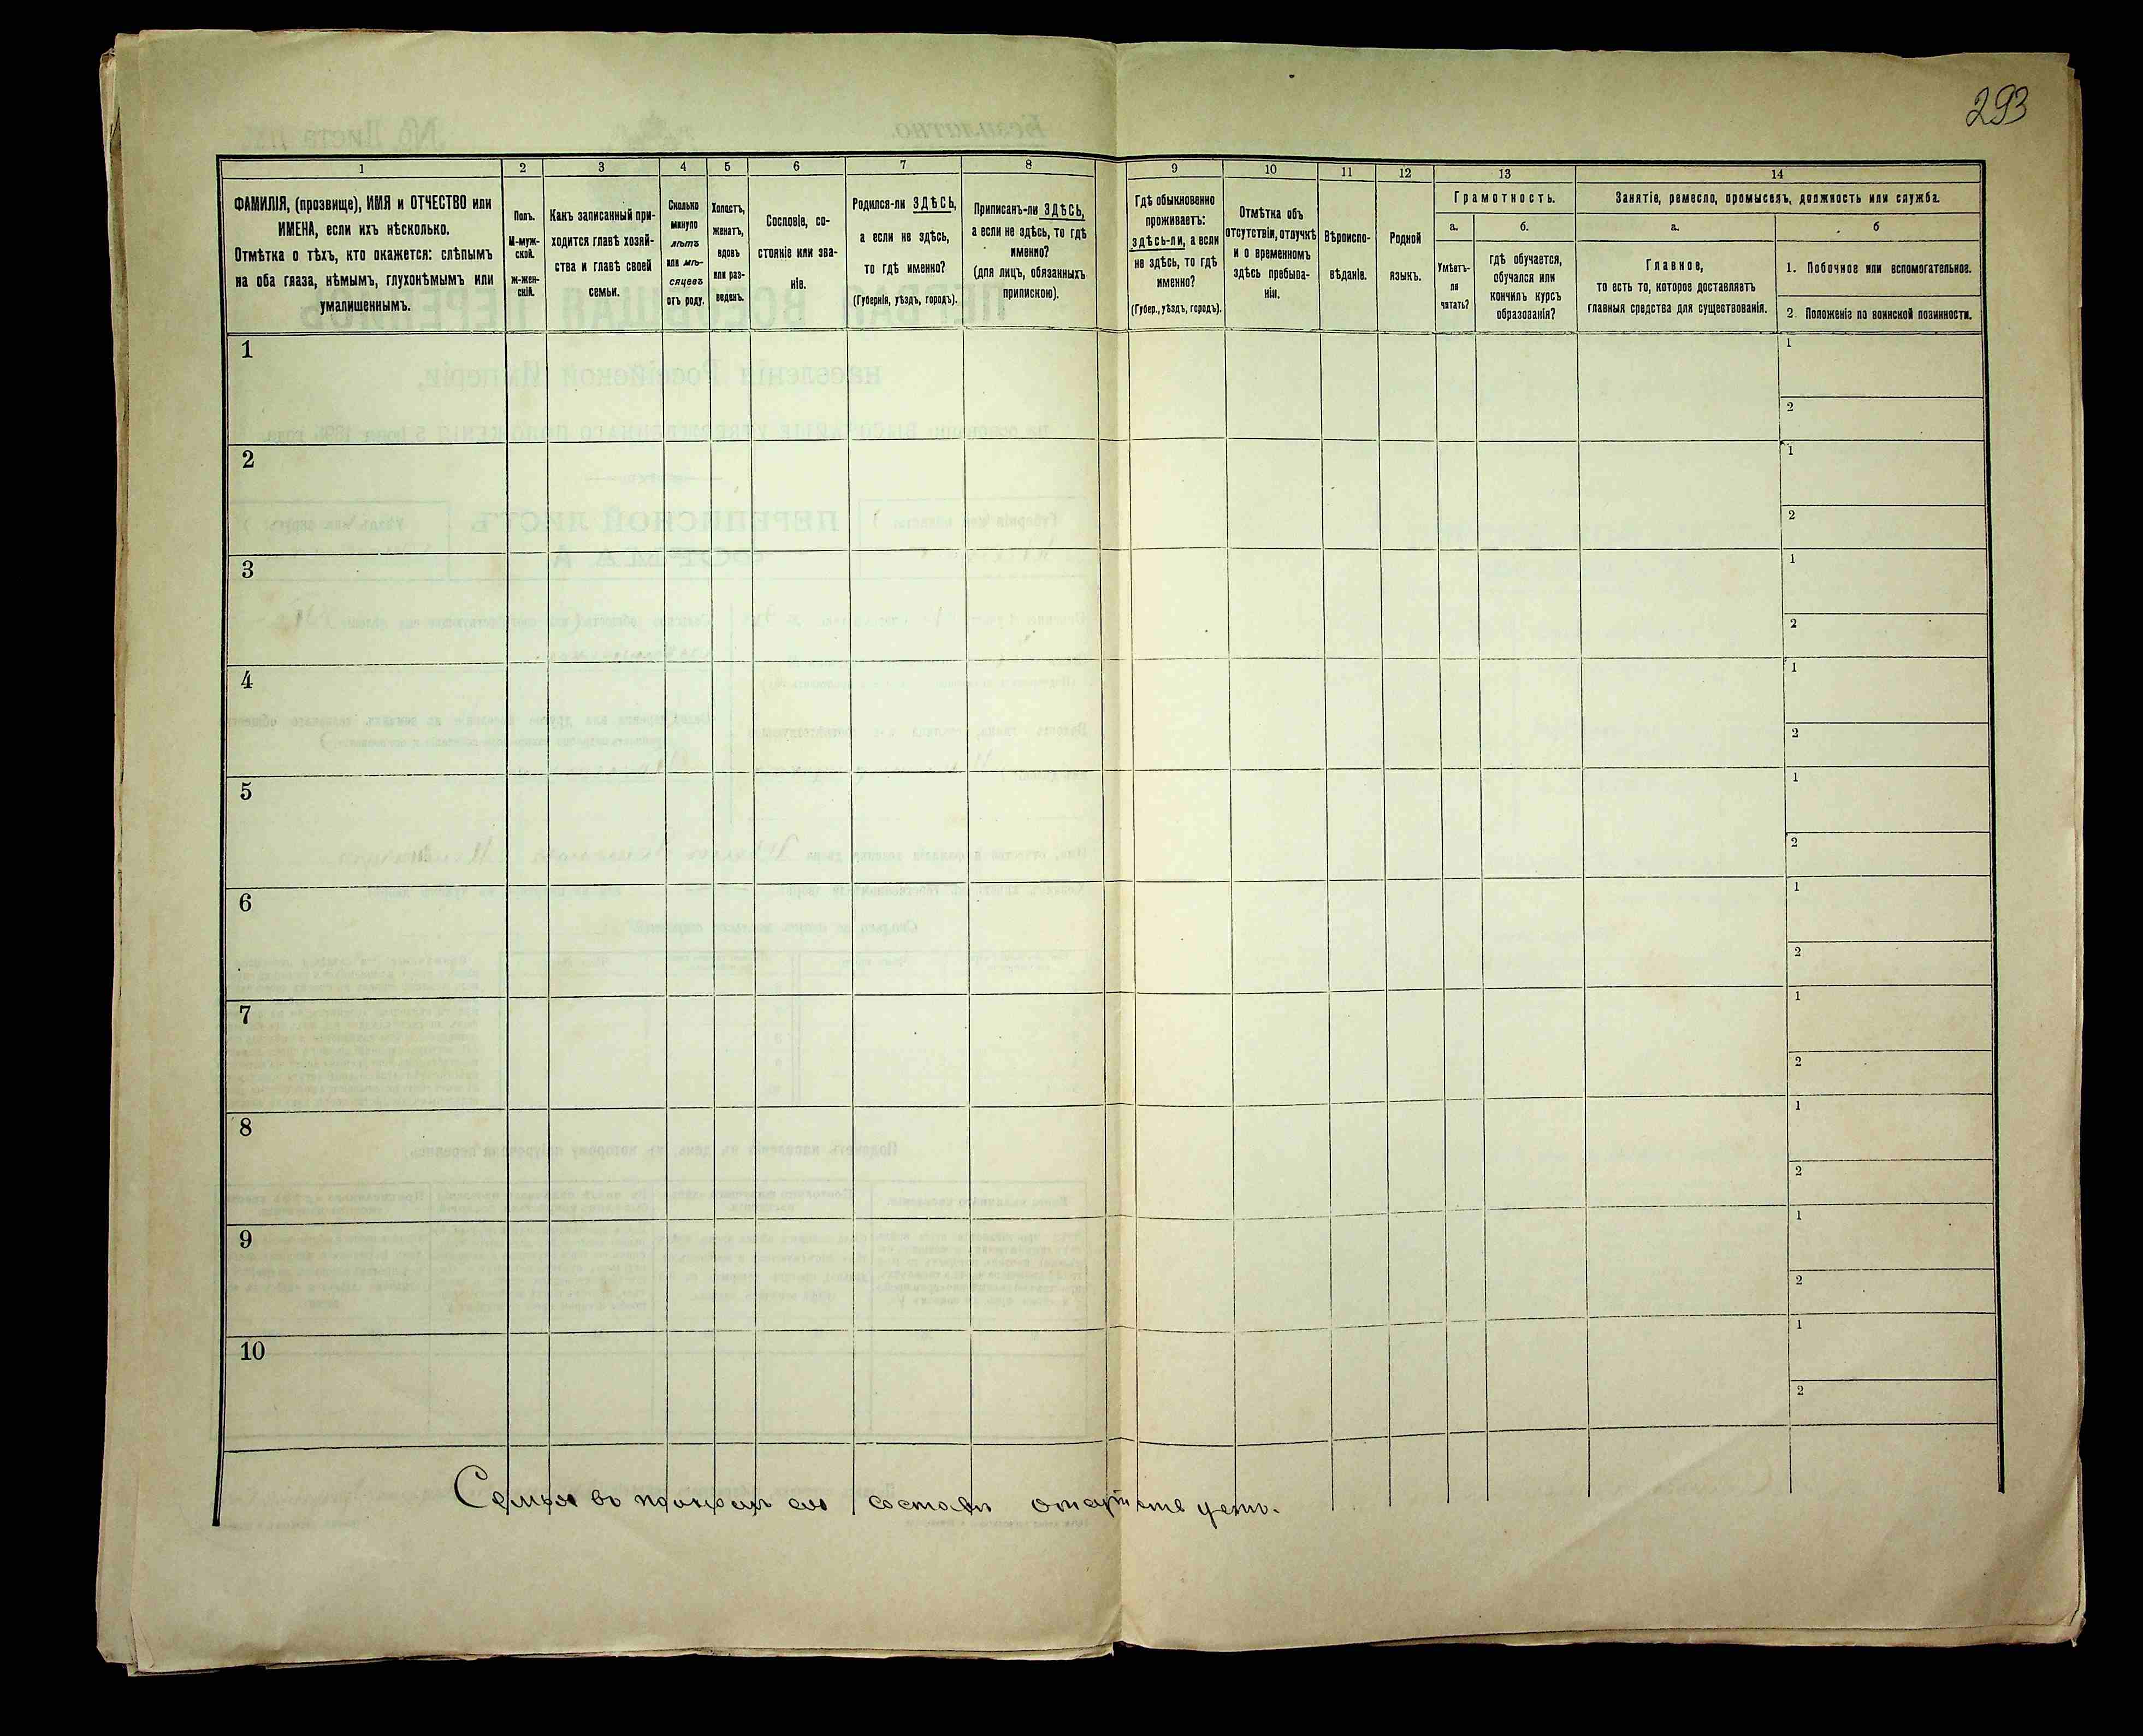 293
1 2 3 4 5 6 7 8 9 10 11 12 13 14
ФАМИЛІЯ, (прозвище), ИМЯ и ОТЧЕСТВО или
ИМЕНА, если ихъ нѣсколько.
Отмѣтка о тѣхъ, кто окажется: слѣпымъ
на оба глаза, нѣмымъ, глухонѣмымъ или
умалишеннымъ.
Полъ.
М-муж-
ской.
ж-жен-
скій.
Какъ записанный при-
ходится главѣ хозяй-
ства и главѣ своей
семьи.
Сколько
минуло
лѣтъ
или мѣ-
сяцевъ
отъ роду.
Холостъ,
женатъ,
вдовъ
или раз-
веденъ.
Сословіе, со-
стояніе или зва-
ніе.
Родился-ли ЗДѢСЬ,
а если не здѣсь,
то гдѣ именно?
(Губернія, уѣздъ, городъ).
Приписанъ-ли ЗДѢСЬ,
а если не здѣсь, то гдѣ
именно?
(для лицъ, обязанныхъ
припискою).
Гдѣ обыкновенно
проживаетъ:
здѣсь-ли, а если
не здѣсь, то гдѣ
именно?
(Губер., уѣздъ, городъ).
Отмѣтка объ
отсутствіи, отлучкѣ
и о временномъ
здѣсь пребыва-
ніи.
Вѣроиспо-
вѣданіе.
Родной
языкъ.
Грамотность.
а.
Умѣетъ-
ли
читать?
б.
гдѣ обучается,
обучался или
кончилъ курсъ
образованія?
Занятіе, ремесло, промыселъ, должность или служба.
а.
Главное,
то есть то, которое доставляетъ
главныя средства для существованія.
б
1. Побочное или вспомогательное.
2. Положеніе по воинской повинности.
1
1
2
2
1
2
3
1
2
4
1
2
5
1
2
6
1
2
7
1
2
8
1
2
9
1
2
10
1
2
Семья въ полномъ ея составѣ